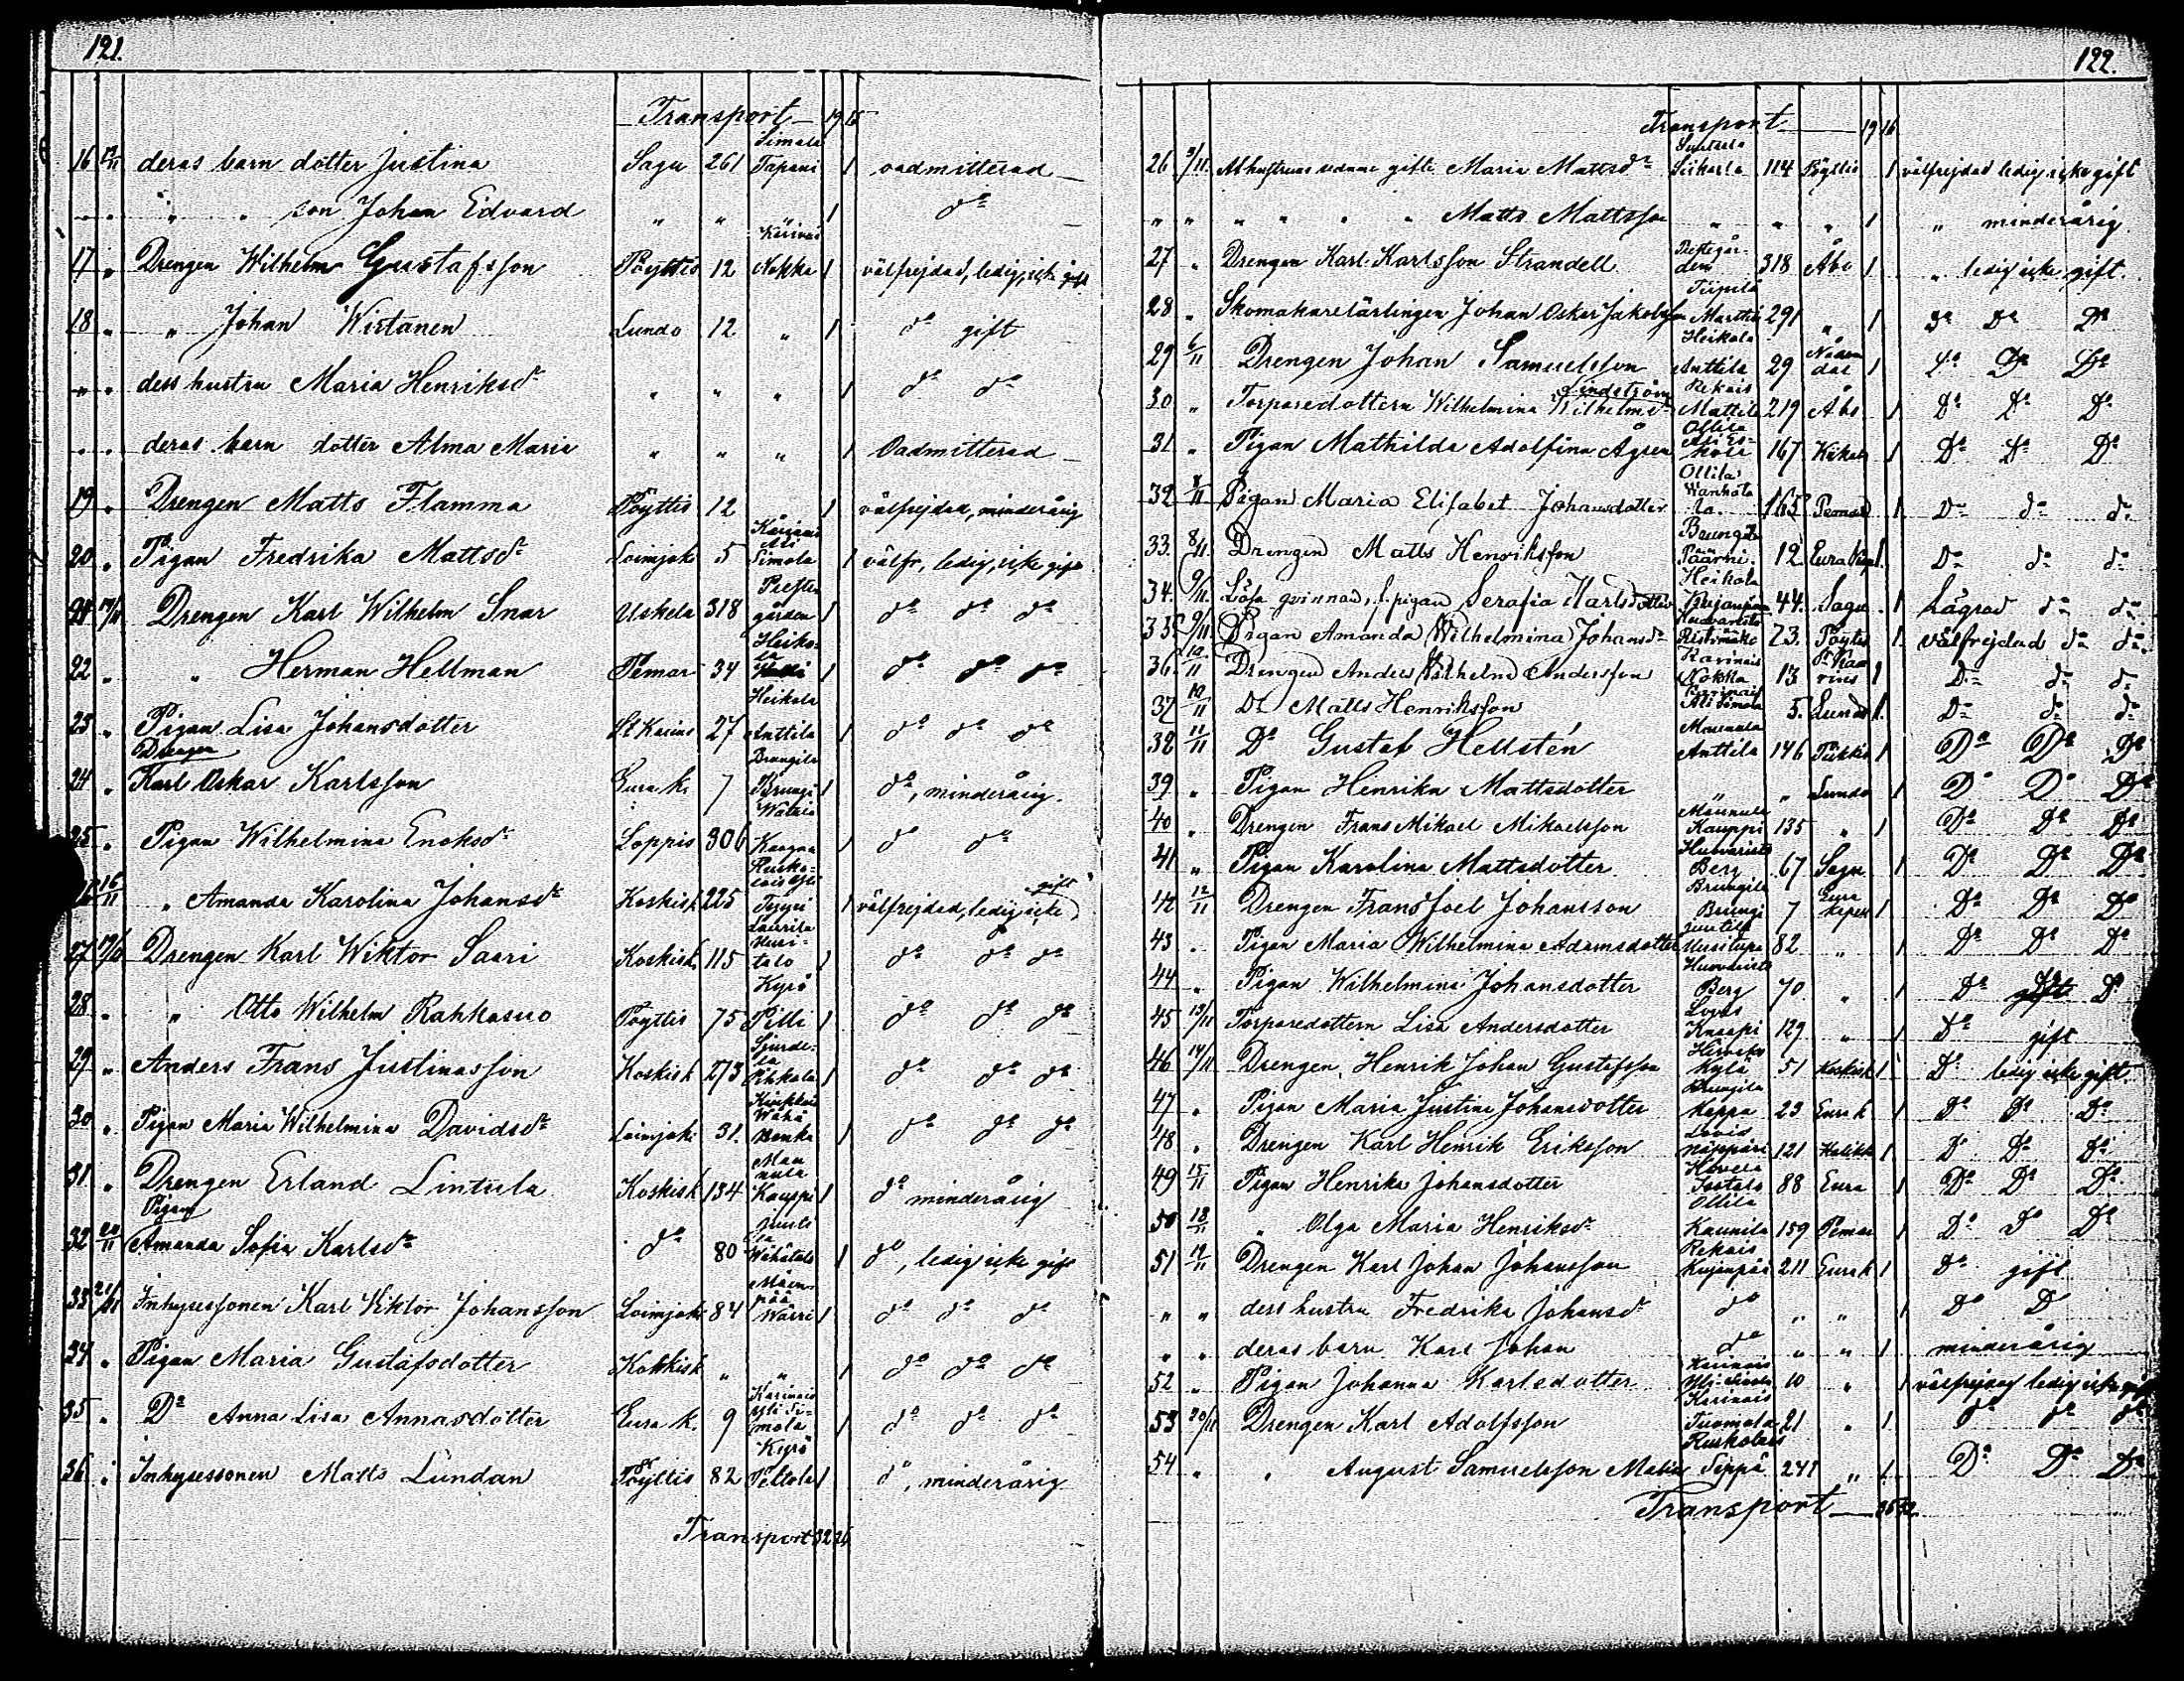 121.
Transport 19 15
16 12/11 deras barn dotter Justina Sagu 261 Simala Tapani 1 oadmitterad
" " " " son Johan Edvard " " 1 do
17 " Drengen Wilhelm Gustafsson Pöyttis 12 Karinais Nokka 1 välfrejdad, ledig, icke gift
18 " " Johan Wirtanen Lundo 12 " 1 do gift
" " dess hustru Maria Henriksdr " " " 1 do do
" " deras barn dotter Alma Maria " " " 1 Oadmitterad
19 " Drengen Matts Flamma Pöyttis 12 1 välfrejdad, minderårig
20 " Pigan Fredrika Mattsdr Loimjoki 5 Karinais Ali Simola 1 välfr, ledig, icke gift
21 14/11 Drengen Karl Wilhelm Snar Uskela 318 Prestgården 1 do do do
22 " " Herman Hellman Pemar 34 Heikola 1 do do do
23 " Pigan Lisa Johansdotter St Karins 27 Heikola Anttila 1 do do do
24 " Drengen Karl Oskar Karlsson Eura k. 7 Brungila Brungi 1 do, minderårig.
25 " Pigan Wilhelmina Enoksdr Loppis 306 1 do do
16/11 " Amanda Karolina Johansdr Koskis k 225 1 välfrejdad, ledig icke gift
27 19/11 Drengen Karl Wiktor Saari Koskis k. 115 Laurila Uusitalo 1 do do do
28 " " Otto Wilhelm Rahkasuo Pöyttis 75 Kyrö Pilli 1 do do do
29 " Anders Frans Justinasson Koskis k 273 Pihkala 1 do do do
30 " Pigan Maria Wilhelmina Davidsdr Loimjoki 31. 1 do do do
31 " Drengen Erland Lintula Koskis k 134 Maunula Kauppi 1 do minderårig
32 20/11 Pigan Amanda Sofia Karlsdr do 80 Juutila Wähätalo 1 do, ledig icke gift
33 21/11 Inhysessonen Karl Viktor Johansson Loimjoki 84 Mäenpää Wärri 1 do do do
34 " Pigan Maria Gustafsdotter Koskis k " " 1 do do do
35 " Do Anna Lisa Annasdotter Eura k. 9 Karinais Yli Simola 1 do do do
36 " Inhysessonen Matts Lundan Pöyttis 82 Kyrö Peltola 1 do, minderårig
Transport 32 26
122.
Transport 19 16
26 3/11 Afhustruns sednare gifte Maria Mattsdr 114 Pöyttis 1 välfrejdad ledig icke gift
" " " " " " Matts Mattsson " " " 1 " minderårig
27 " Drengen Karl Karlsson Strandell Prestegården 318 Åbo 1 " ledig icke gift.
28 " Skomakarelärlingen Johan Oskar Jakobsson Marttila 291 " 1 Do Do Do
29 6/11 Drengen Johan Samuelsson Heikola Anttila 29 Nådendal 1 Do Do Do
30 " Torparedottern Wilhelmina Wilhelmsdr Lindström Rekais Mattila 219 Åbo 1 Do Do Do
31 " Pigan Mathilda Adolfina Ågren Ollila 167 Kiikala 1 Do Do Do
32 8/11 Pigan Maria Elisabet Johansdotter Ollila Wanhatalo 165 Pemar 1 Do do do
33. 8/11. Drengen Matts Henriksson Päärni 12. Eura 1. Do do do
34. 9/11. Lösa qvinnan, f. pigan Serafia Karlsdotter Heikola 44. Sagu 1 Lågrad do do
35 9/11 Pigan Amanda Wilhelmina Johansdr Ristimäki 73. Pöytis 1 välfrejdad do do.
36. 10/11 Drengen Anders Wilhelm Andersson Karinais Nokka 13 St Karins 1 Do do do
37 10/11 Do Matts Henriksson Karinais Ali Simola 5. Lundo 1. Do do do
38 11/11 Do Gustaf Hellstén Maunula Anttila 146 Piikkis 1 Do Do Do
39 " Pigan Henrika Mattsdotter " " Lundo 1 Do Do Do
40 " Drengen Frans Mikael Mikaelsson Maunula Kauppi 135 " 1 Do Do Do
41 " Pigan Karolina Mattsdotter Huovaristo Berg 67 Sagu 1 Do Do Do
42 12/11 Drengen Frans Joel Johansson Brungila Brungi 7 Eura kapell 1 Do Do Do
43 " Pigan Maria Wilhelmina Adamsdotter Juutila Uusitupa 82 " 1 Do Do Do
44 " Pigan Wilhelmina Johansdotter Huovaristo Berg 70 " 1 Do Do Do
45 13/11 Torparedottern Lisa Andersdotter Knaapi 129 " 1 Do gift
46 14/11 Drengen Henrik Johan Gustafsson 51 Koskis k 1 Do ledig icke gift.
47 " Pigan Maria Justina Johansdotter Brungila Kappa 23 Eura k 1 Do Do Do
48 " Drengen Karl Henrik Eriksson Näppäri 121 Halikko 1 Do Do Do
49 15/11 Pigan Henrika Johansdotter Isotalo 88 Eura 1 Do Do Do
50 18/11 " Olga Maria Henriksdr Ollila Kaunila 159 Pemar 1 Do Do Do
51 19/11 Drengen Karl Johan Johansson Rekais Kujanpää 211 Eura k 1 Do gift
" " dess hustru Fredrika Johansdr do " " 1 Do Do
" " deras barn Karl Johan do " " 1 minderårig
52 " Pigan Johanna Karlsdotter Karinais Yli Simola 10 " 1 välfrejdad ledig icke gift
53 20/11 Drengen Karl Adolfsson Karinais Tuomola 21 " 1 do do do
54 " " August Samuelsson Malin Ruskolais Seppä 241 " 1 Do Do Do
Transport 36 32